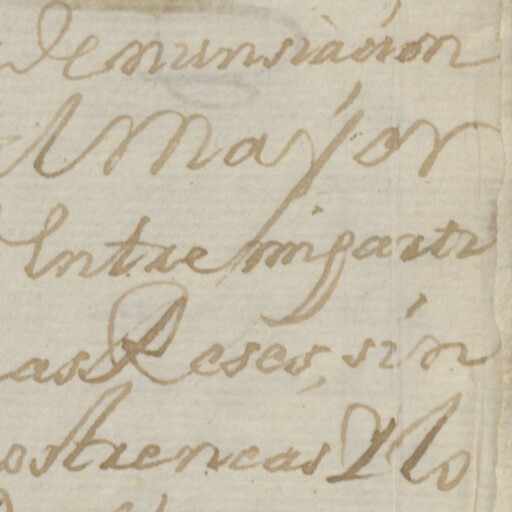 Denunsiacion
Mayor
Entre mi parte
as Reses, sin
ostrencas Y lo